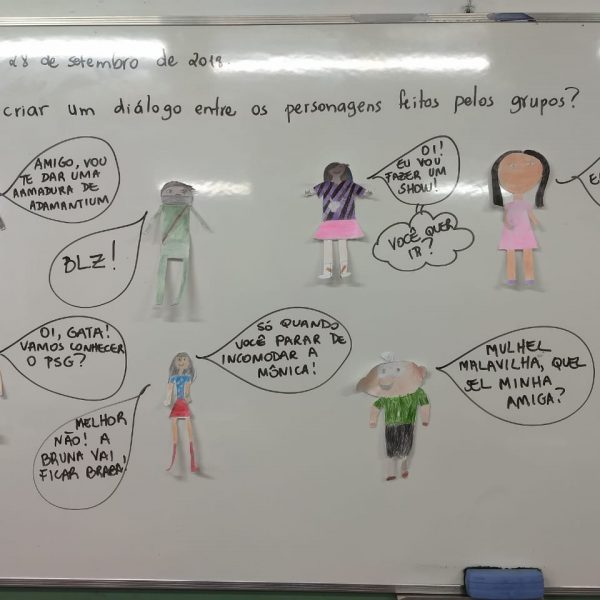 28 de setembro de 2018.
criar um diálogo entre os personagens feitos pelos grupos?
AMIGO, VOU
TE DAR UMA
ARMADURA DE
ADAMANTIUM
BLZ!
OI!
EU VOU
FAZER UM
SHOW!
VOCÊ QUER
IR?
OI, GATA!
VAMOS CONHECER
O PSG?
MELHOR
NÃO! A
BRUNA VAI
FICAR BRABA!
SÓ QUANDO
VOCÊ PARAR DE
INCOMODAR A
MÔNICA!
MULHEL
MALAVILHA, QUEL
SEL MINHA
AMIGA?